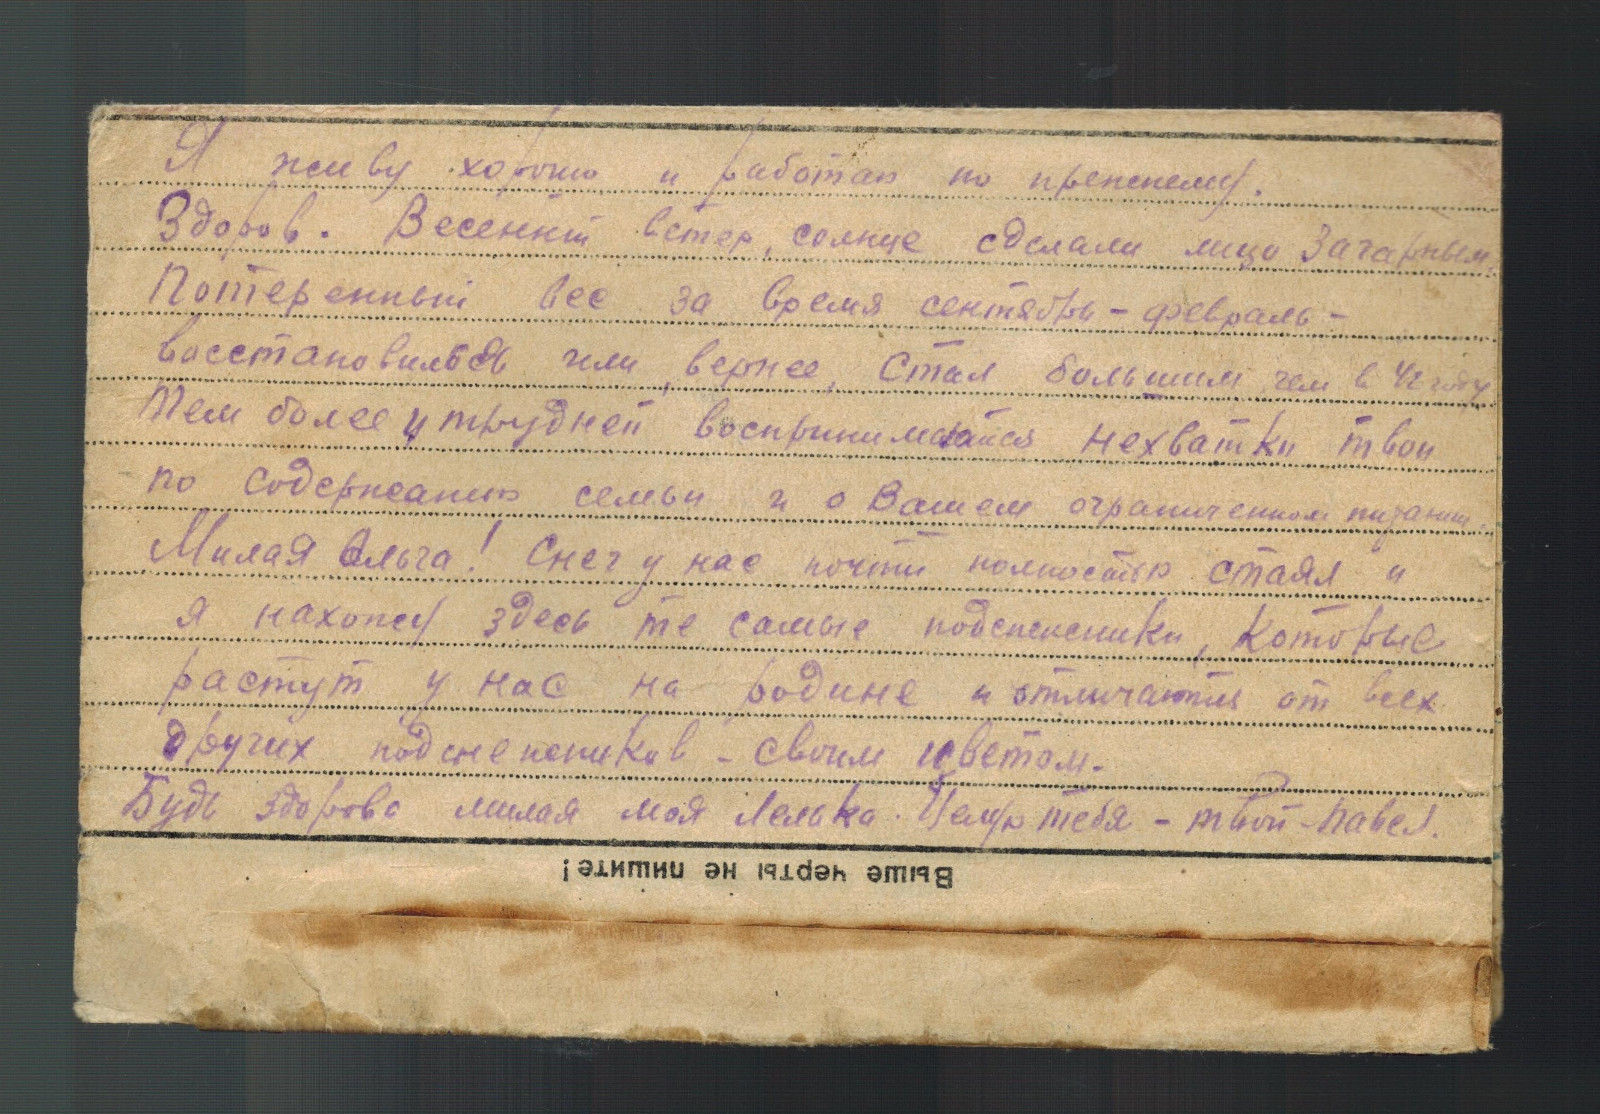 Я живу хорошо и работаю по прежнему.
Здоров. Весенний ветер, солнце сделали лицо загарным.
Потеренный вес за время сентябрь – февраль –
восстановился или, вернее, стал большим чем в 42 году
Тем более и трудней воспринимаются нехватки твои
по содержанию семьи и о Вашем ограниченном питании.
Милая Ольга! Снег у нас почти полностью стаял и
я нахожу здесь те самые подснежники, которые
растут у нас на родине и отличаются от всех
других подснежников – своим цветом.
Будь здорова милая моя Лелька. Целую тебя – твой – Павел.
Выше черты не пишите!